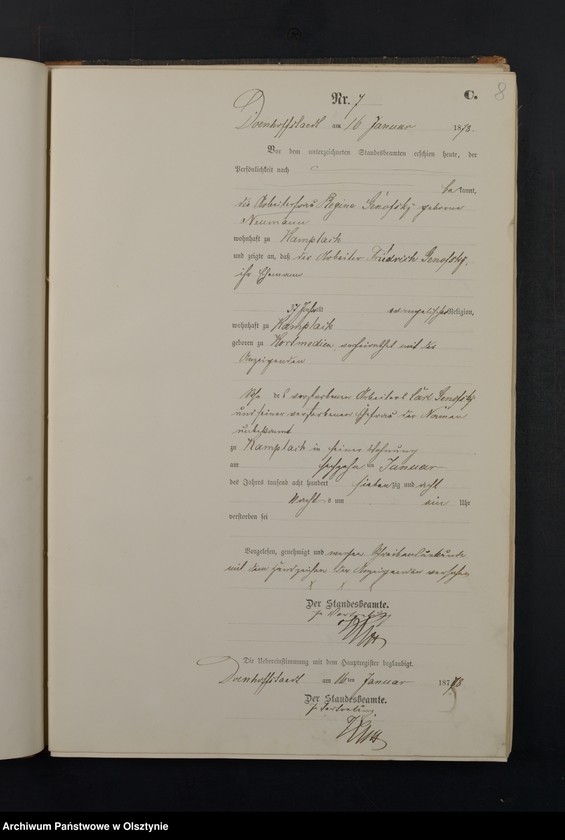 8
C.
Nr. 7
Doenhoffstaedt am 16 Januar 1878.
Vor dem unterzeichneten Standesbeamten erschien heute, der
Persönlichkeit nach
bekannt,
die Arbeiterfrau Regine Genofsky geborne
Neumann
wohnhaft zu Kamplack
und zeigte an, daß der Arbeiter Friedrich Genofsky,
ihr Ehemann
57 Jahr alt evangelischer Religion,
wohnhaft zu Kamplack
geboren zu verheirathet mit der
Anzeigenden
Sohn des verstorbenen Arbeiters Carl Genofsky
und seiner verstorbenen Ehefrau der Namen
unbekannt
zu Kamplack in seiner Wohnung
am sechszehn ten Januar
des Jahres tausend acht hundert siebenzig und acht
Nachts um ein Uhr
verstorben sei
Vorgelesen, genehmigt und wegen Schreibensunkunde
mit dem Handzeichen der Anzeigenden versehen
x x x
Der Standesbeamte.
In Vertretung
Die Uebereinstimmung mit dem Hauptregister beglaubigt.
Doenhoffstaedt am 16 ten Januar 1878
Der Standesbeamte.
In Vertretung
Archiwum Państwowe w Olsztynie